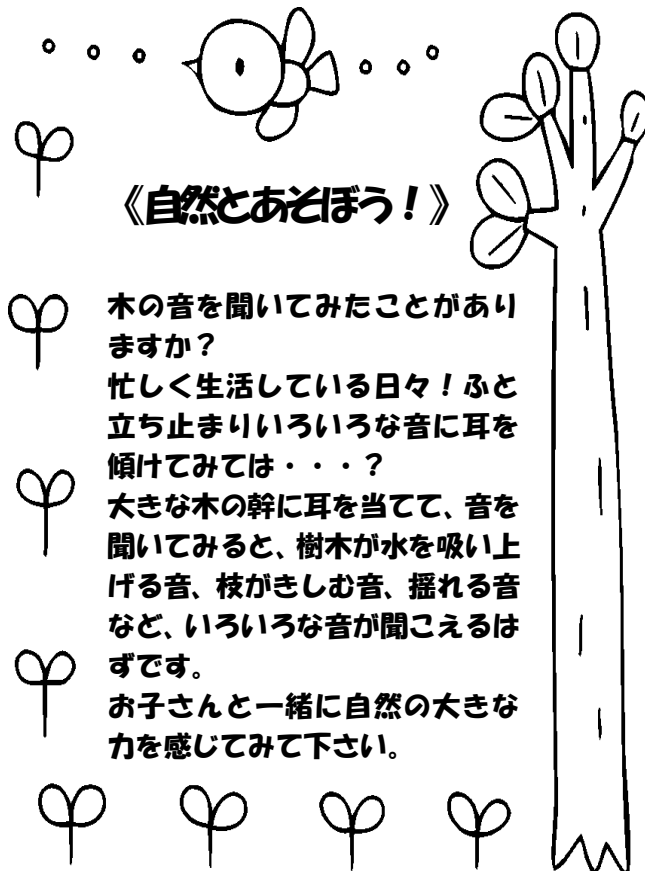 《自然とあそぼう！》
木の音を聞いてみたことがあり
ますか？
忙しく生活している日々！ふと
立ち止まりいろいろな音に耳を
傾けてみては・・・？
大きな木の幹に耳を当てて、音を
聞いてみると、樹木が水を吸い上
げる音、枝がきしむ音、揺れる音
など、いろいろな音が聞こえるは
ずです。
お子さんと一緒に自然の大きな
力を感じてみて下さい。